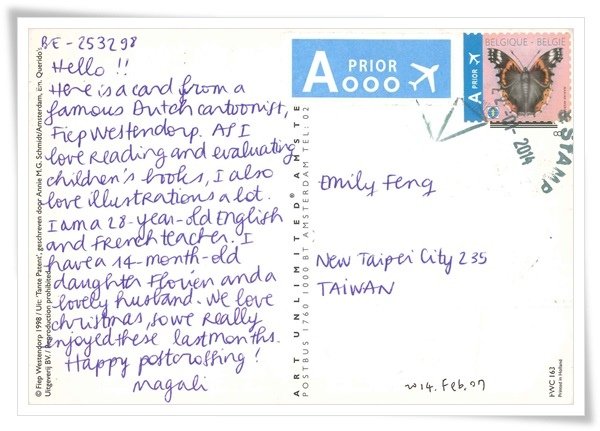 BE-253298
Hello !!
Here is a card from a
famous Dutch cartoonist,
Fiep Westendorp. As I
love reading and evaluating
children's books, I also
love illustrations a lot.
I am a 28-year-old English
and French teacher. I
have a 14-month-old
daughter Florien and a
lovely husband. We love
christmas, so we really
enjoyed these last months.
Happy postcrossing!
Magali
© Fiep Westendorp 1998 / Uit: 'Tante Patent', geschreven door Annie M.G. Schmidt/Amsterdam, Em. Querido's
Uitgeverij BV. / Reproduction prohibited
ART UNLIMITED® AMSTE
POSTBUS 1/760 1000 BT AMSTERDAM TEL: 02
A PRIOR
A PRIOR
BELGIQUE - BELGIE
2014
STAMP
Emily Feng
New Taipei City 235
TAIWAN
2014. Feb. 07
FWC 163
Printed in Holland